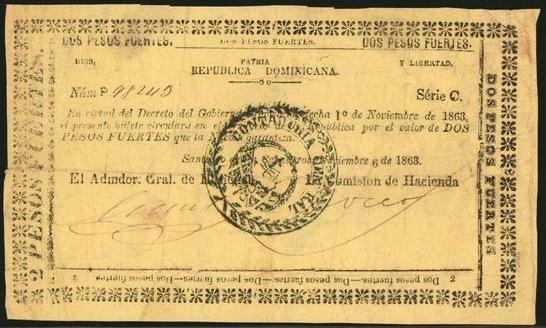 DOS PESOS FUERTES. DOS PESOS FUERTES. DOS PESOS FUERTES.
DIOS, PATRIA Y LIBERTAD.
REPUBLICA DOMINICANA.
Núm Série C.
En virtud del Decreto del Gobierno fecha 1º de Noviembre de 1863,
el presente billete circulará en el pública por el valor de DOS
PESOS FUERTES que la garantiza.
Noviembre 6 de 1863.
El Admdor. Gral. de La Comision de Hacienda
2 PESOS FUERTES.
DOS PESOS FUERTES
2 Dos pesos fuertes.—Dos pesos fuertes.—Dos pesos fuertes 2